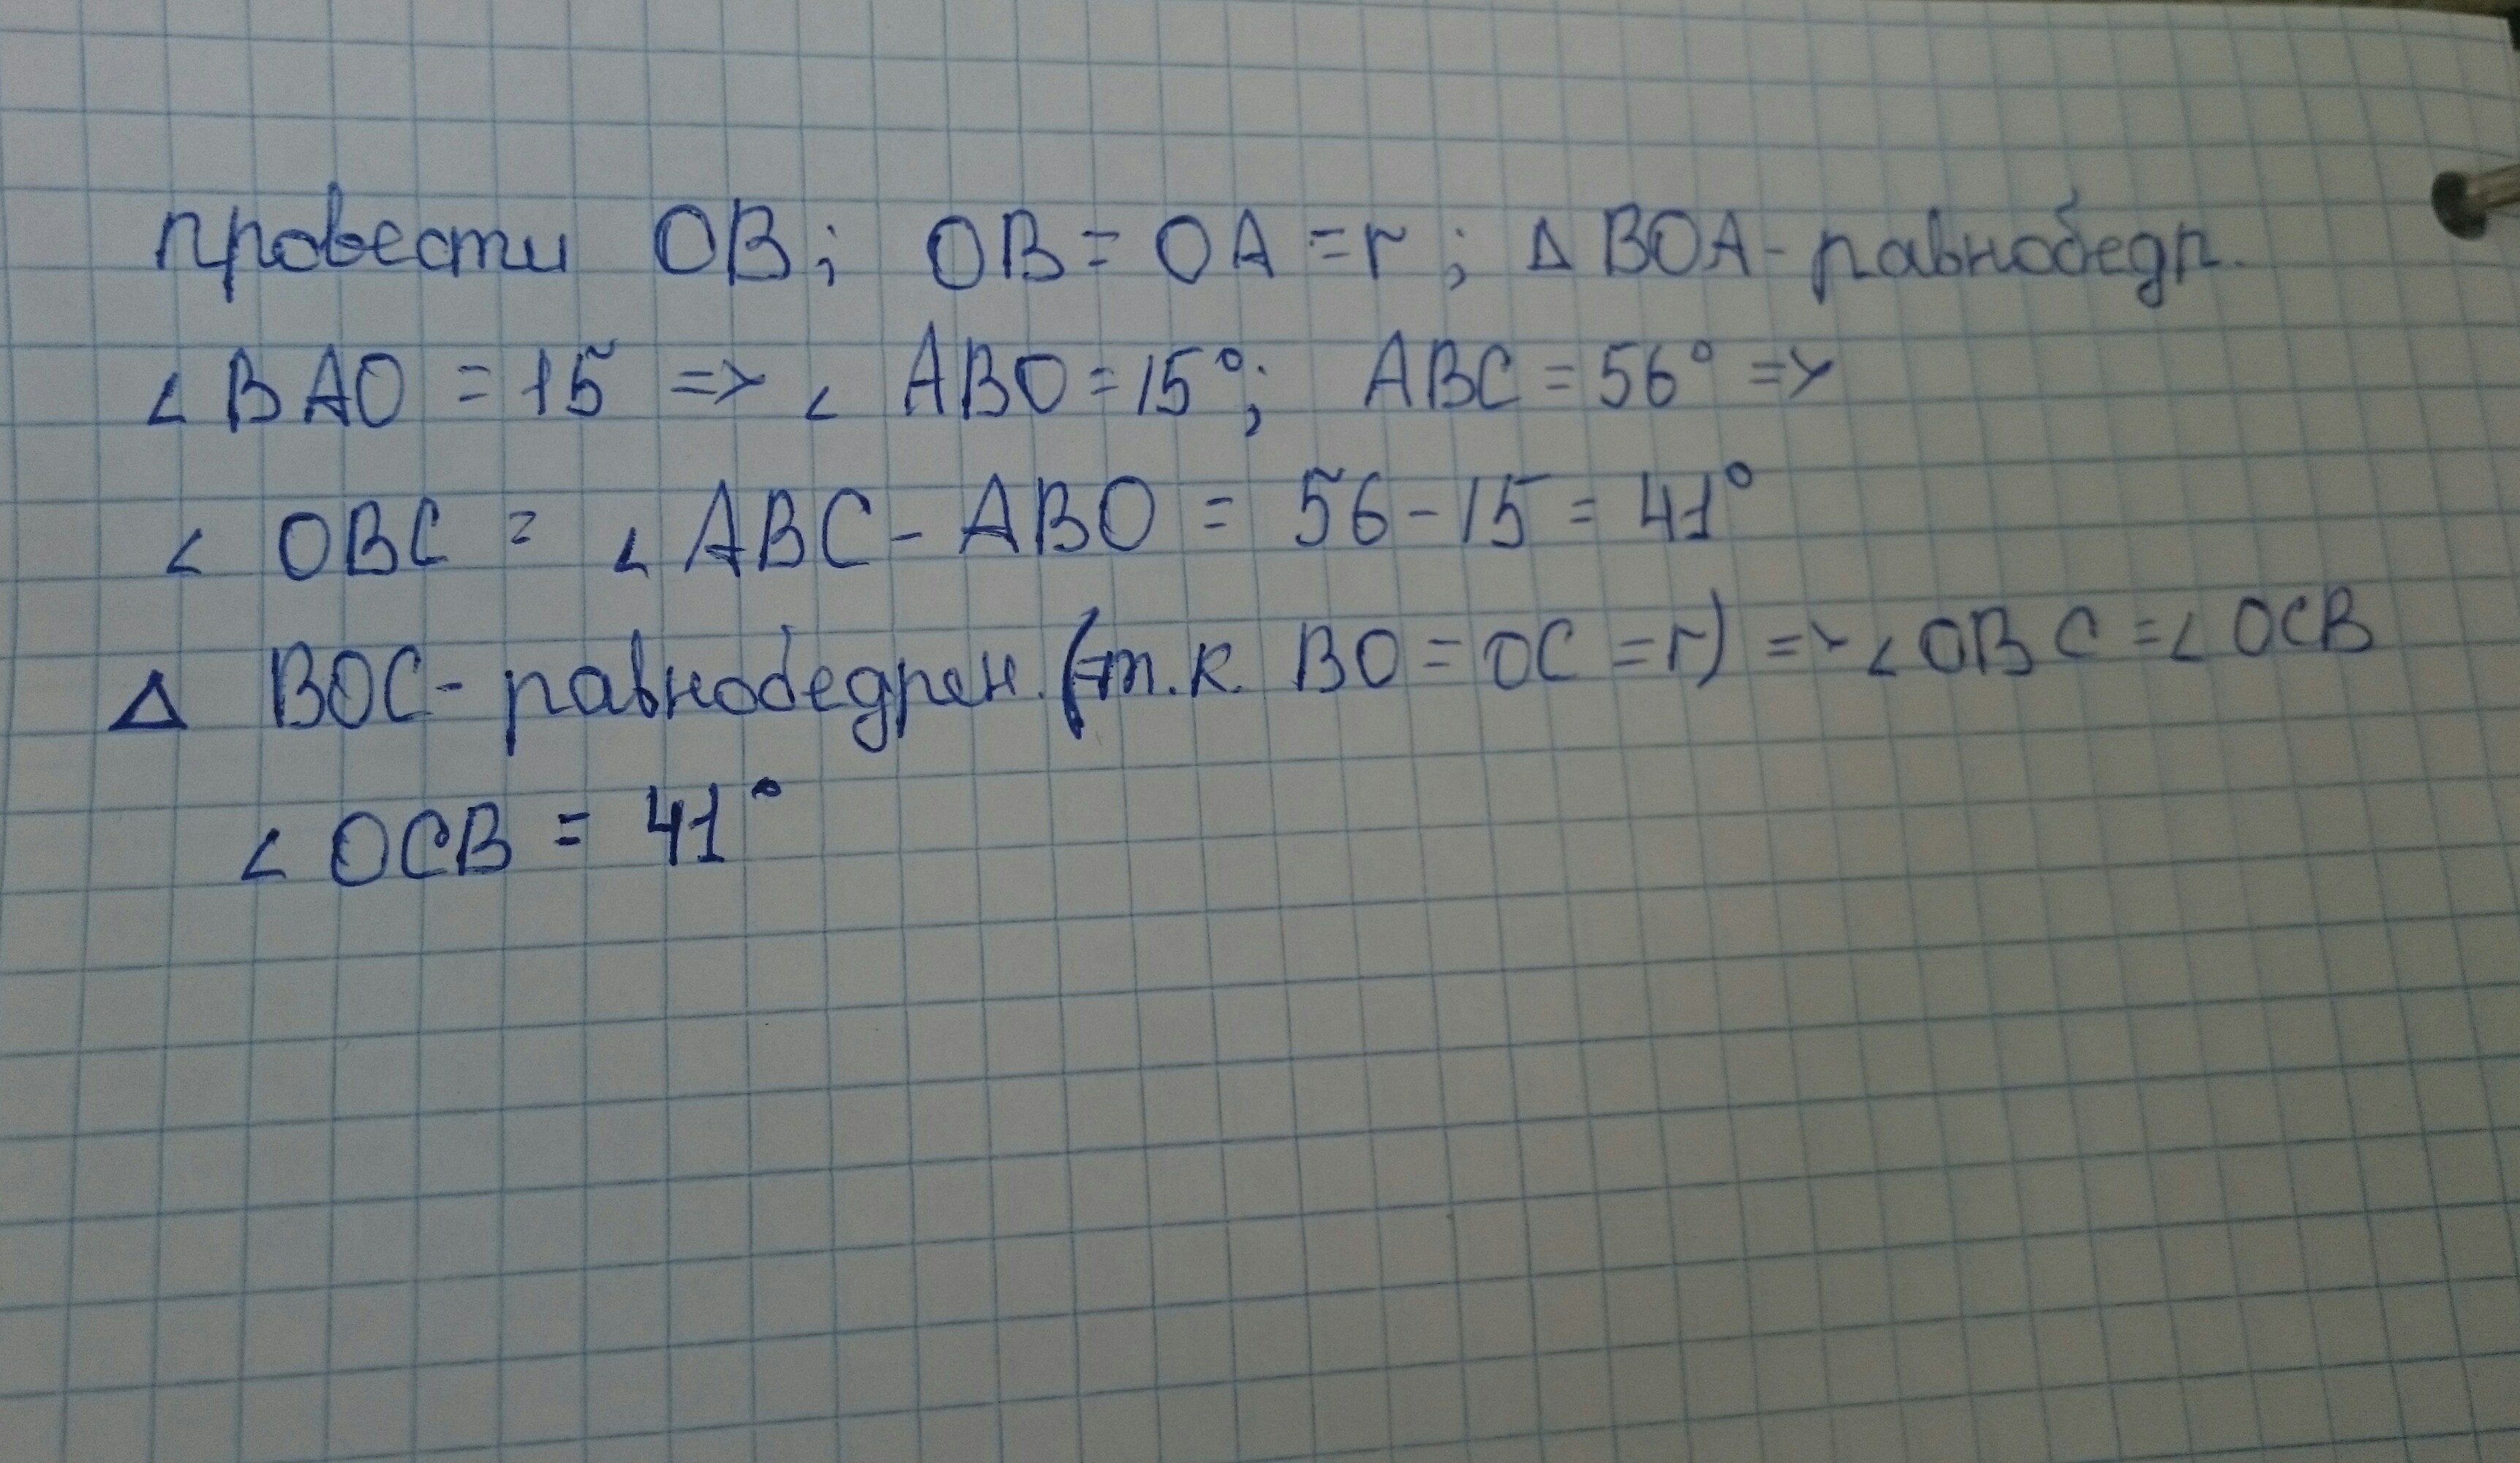 провести OB; OB = OA = r; Δ BOA - равнобедр.
∠ BAO = 15 => ∠ ABO = 15°; ABC = 56° =>
∠ OBC = ∠ ABC - ABO = 56 - 15 = 41°
Δ BOC - равнобедрен. (т.к. BO = OC = r) => ∠ OBC = ∠ OCB
∠ OCB = 41°